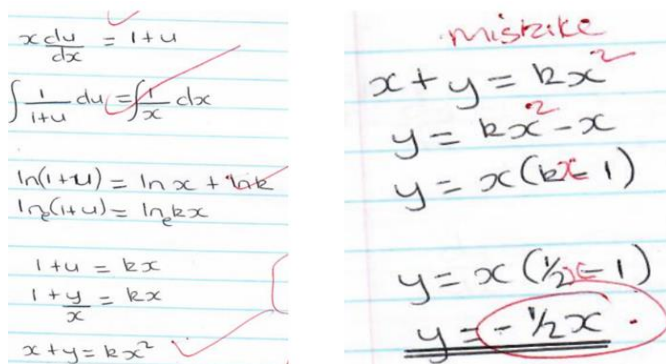 x du/dx = 1+u
∫ 1/(1+u) du = ∫ 1/x dx
ln(1+u) = ln x + ln k
lnₑ(1+u) = lnₑ kx
1+u = kx
1 + y/x = kx
x+y = kx²
mistake
x+y = kx²
y = kx²-x
y = x(kx-1)
y = x(1/2x-1)
y = -1/2x